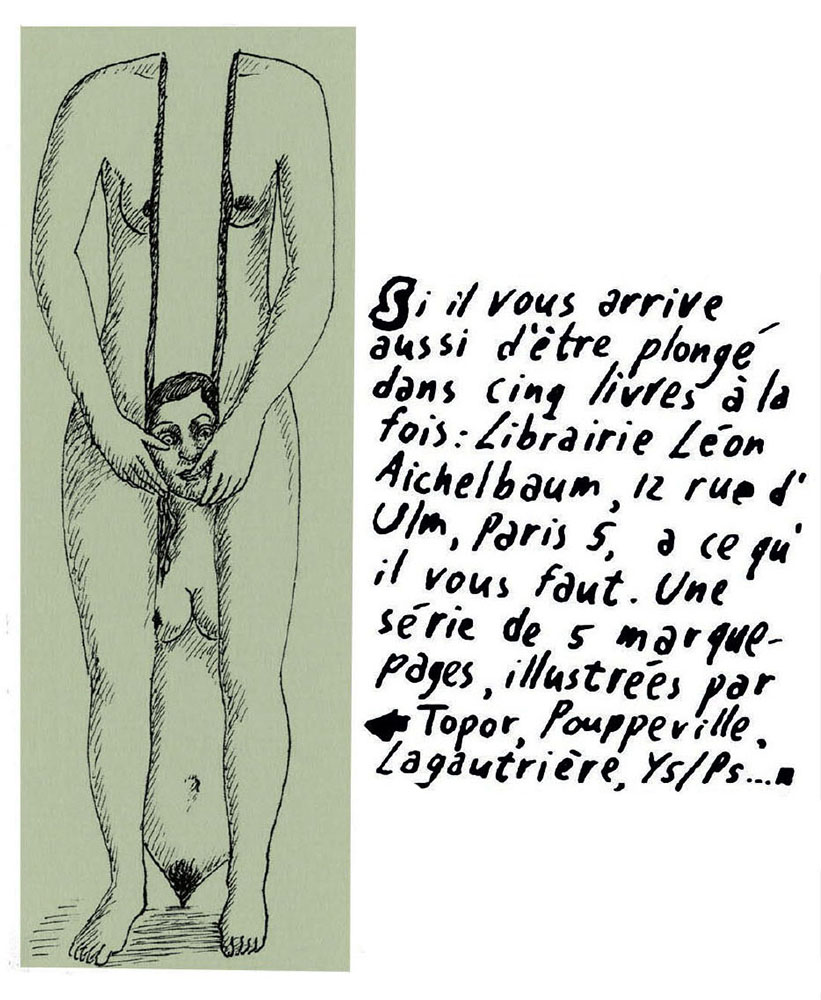 Si il vous arrive
aussi d'être plongé
dans cinq livres à la
fois: Librairie Léon
Aichelbaum, 12 rue d'
Ulm, Paris 5, a ce qu'
il vous faut. Une
série de 5 marque-
pages, illustréés par
Topor, Pouppeville,
Lagautrière, Ys/Ps....